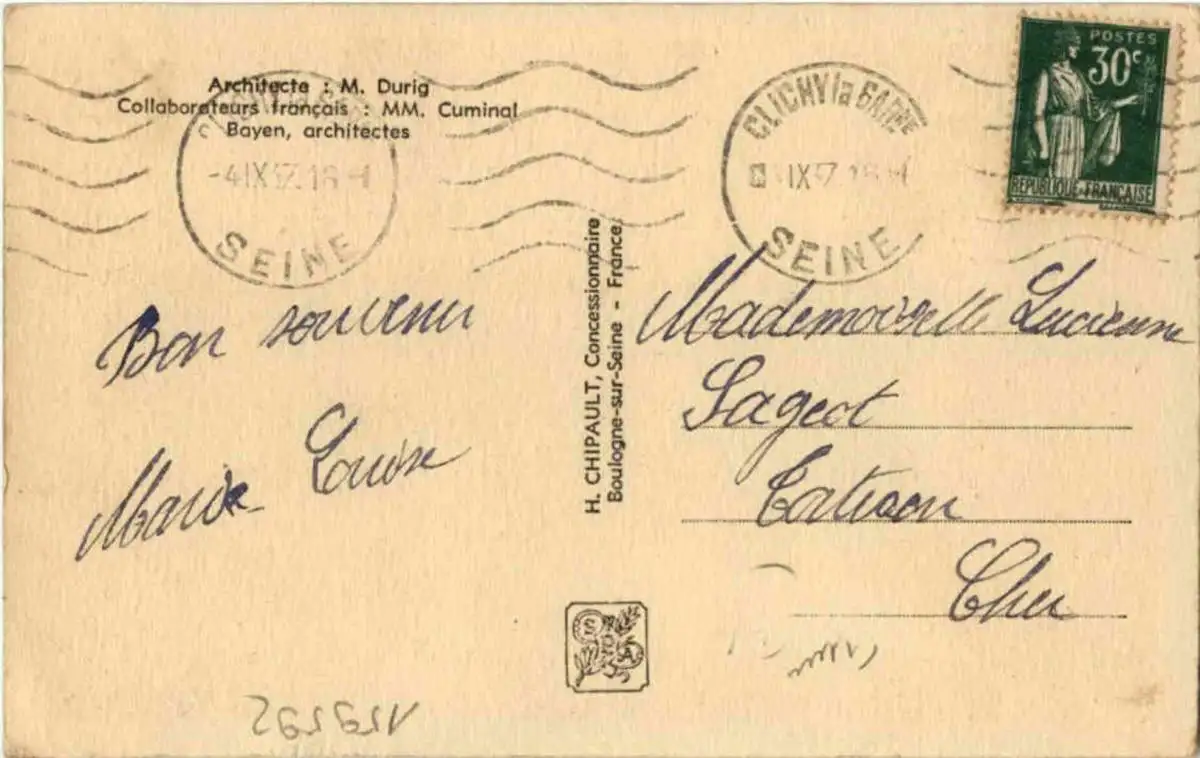 Architecte : M. Durig
Collaborateurs français : MM. Cuminal
Bayen, architectes
-4 IX 37. 18 H
SEINE
CLICHY la GARENNE
IX 37 18 H
SEINE
POSTES
30c
REPUBLIQUE-FRANÇAISE
Bon souvenir
Marie Louise
H. CHIPAULT, Concessionnaire
Boulogne-sur-Seine - France.
Mademoiselle Lucienne
Sageot
Cher
159592